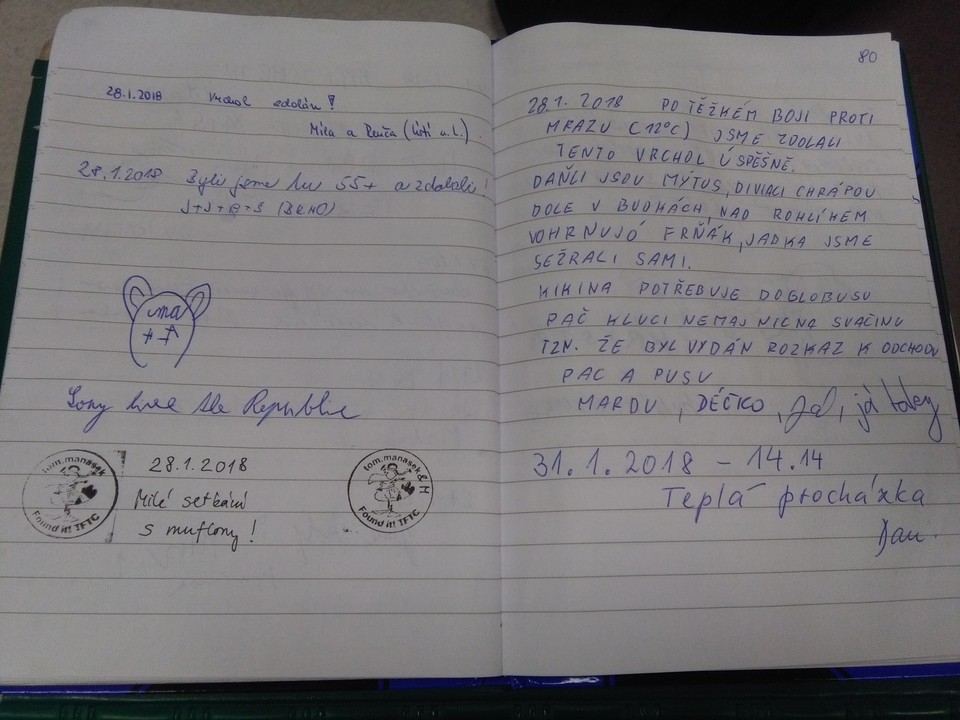 28.1.2018 Vrchol zdolán!
Míla a Renča (Ústí n.L.)
28.1.2018 Byli jsme tu 55+ a zdolali!
J+J+B+S (BRNO)
Long live the Republic
tom.manasek
Found it! TFTC
28.1.2018
Milé setkání
s muflony!
tom.manasek&H
Found it! TFTC
80
28.1. 2018 PO TĚŽKÉM BOJI PROTI
MRAZU (12°C) JSME ZDOLALI
TENTO VRCHOL ÚSPĚŠNĚ.
DAŇCI JSOU MÝTUS, DIVIACI CHRÁPOU
DOLE V BUDHÁCH, NAD ROHLÍKEM
VOHRNUJÓ FRŇÁK, JADKA JSME
SEŽRALI SAMI.
KIKINA POTŘEBUJE DO GLOBUSU
PAČ KLUCI NEMAJ NIC NA SVAČINU
TZN. ŽE BYL VYDÁN ROZKAZ K ODCHODU
PAC A PUSU
MARDU, DÉČKO, já
31.1.2018 - 14.14
Teplá procházka
Dan.